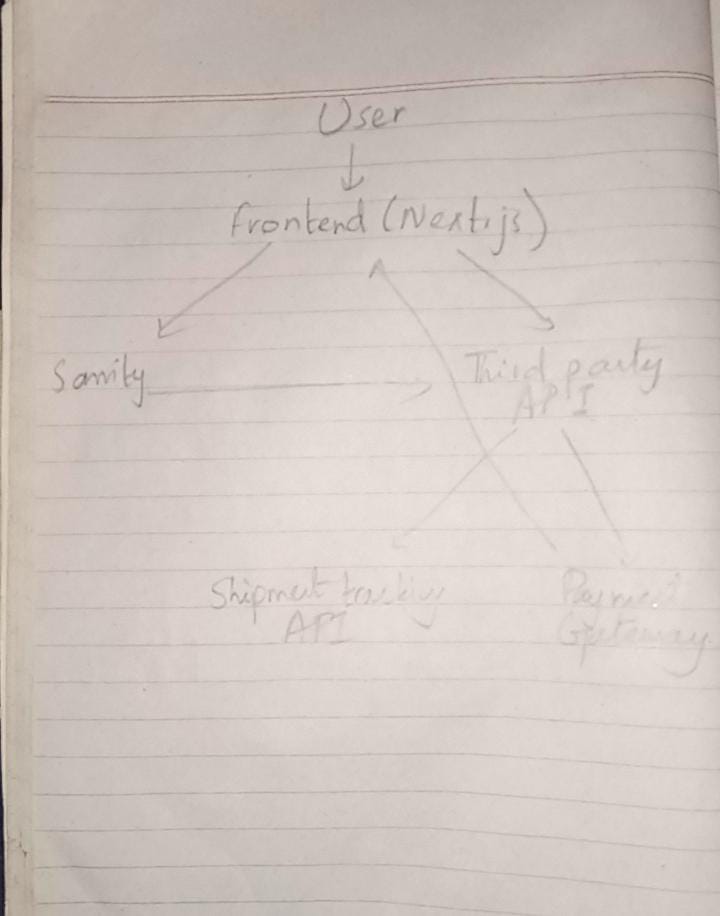 User
Frontend (Next.js)
Sanity
Third party
API
Shipment tracking
API
Payment
Gateway